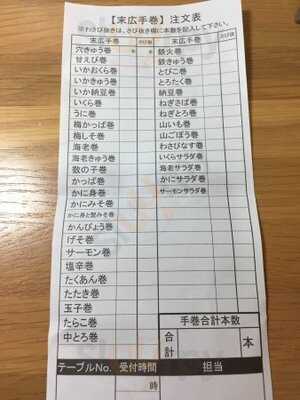 【末広手巻】注文表
※わさび抜きは、さび抜き欄に本数を記入して下さい。
末広手巻 さび抜 末広手巻 さび抜
穴きゅう巻 鉄火巻
甘えび巻 鉄きゅう巻
いかおくら巻 とびこ巻
いかきゅう巻 とろたく巻
いか納豆巻 納豆巻
いくら巻 ねぎさば巻
うに巻 ねぎとろ巻
梅かっぱ巻 山いも巻
梅しそ巻 山ごぼう巻
海老巻 わさびなす巻
海老きゅう巻 いくらサラダ巻
数の子巻 海老サラダ巻
かっぱ巻 かにサラダ巻
かに身巻 サーモンサラダ巻
かにみそ巻
かに身と蟹みそ巻
かんぴょう巻
げそ巻
サーモン巻
塩辛巻
たくあん巻
たたき巻
玉子巻
たらこ巻 手巻合計本数
中とろ巻 合計 本
テーブルNo. 受付時間 担当
時